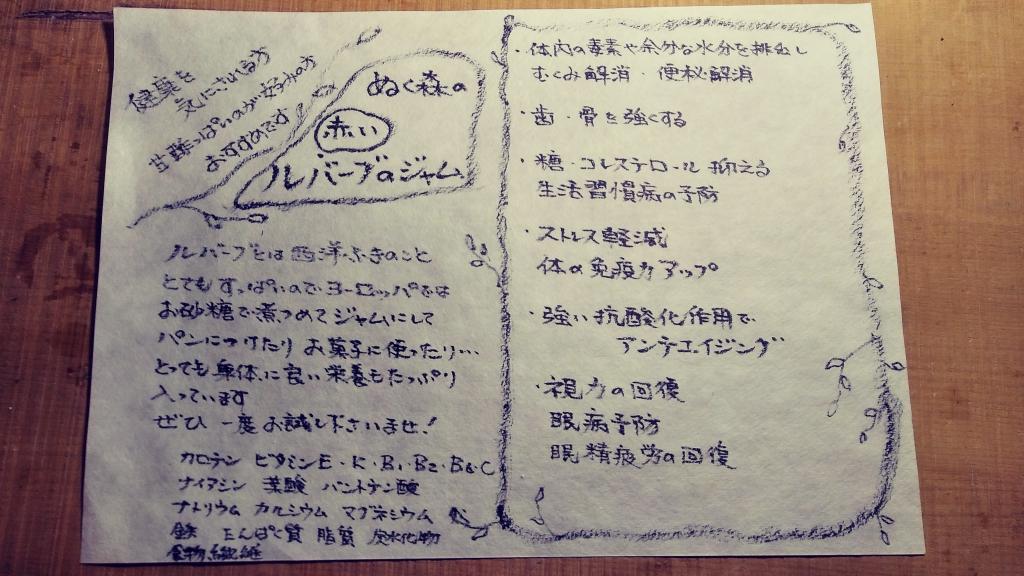 健康を
気にされる方
甘酸っぱいのが好みの方
おすすめです
ぬく森の
赤い
ルバーブのジャム
ルバーブとは西洋ふきのこと
とてもすっぱいのでヨーロッパでは
お砂糖で煮つめてジャムにして
パンにつけたりお菓子に使ったり…
とっても身体に良い栄養もたっぷり
入っています
ぜひ一度お試し下さいませ!
カロテン ビタミンE・K・B1・B2・B6・C
ナイアシン 葉酸 パントテン酸
ナトリウム カルシウム マグネシウム
鉄 たんぱく質 脂質 炭水化物
食物繊維
・体内の毒素や余分な水分を排出し
むくみ解消・便秘解消
・歯・骨を強くする
・糖・コレステロール抑える
生活習慣病の予防
・ストレス軽減
体の免疫力アップ
・強い抗酸化作用で
アンチエイジング
・視力の回復
眼病予防
眼精疲労の回復